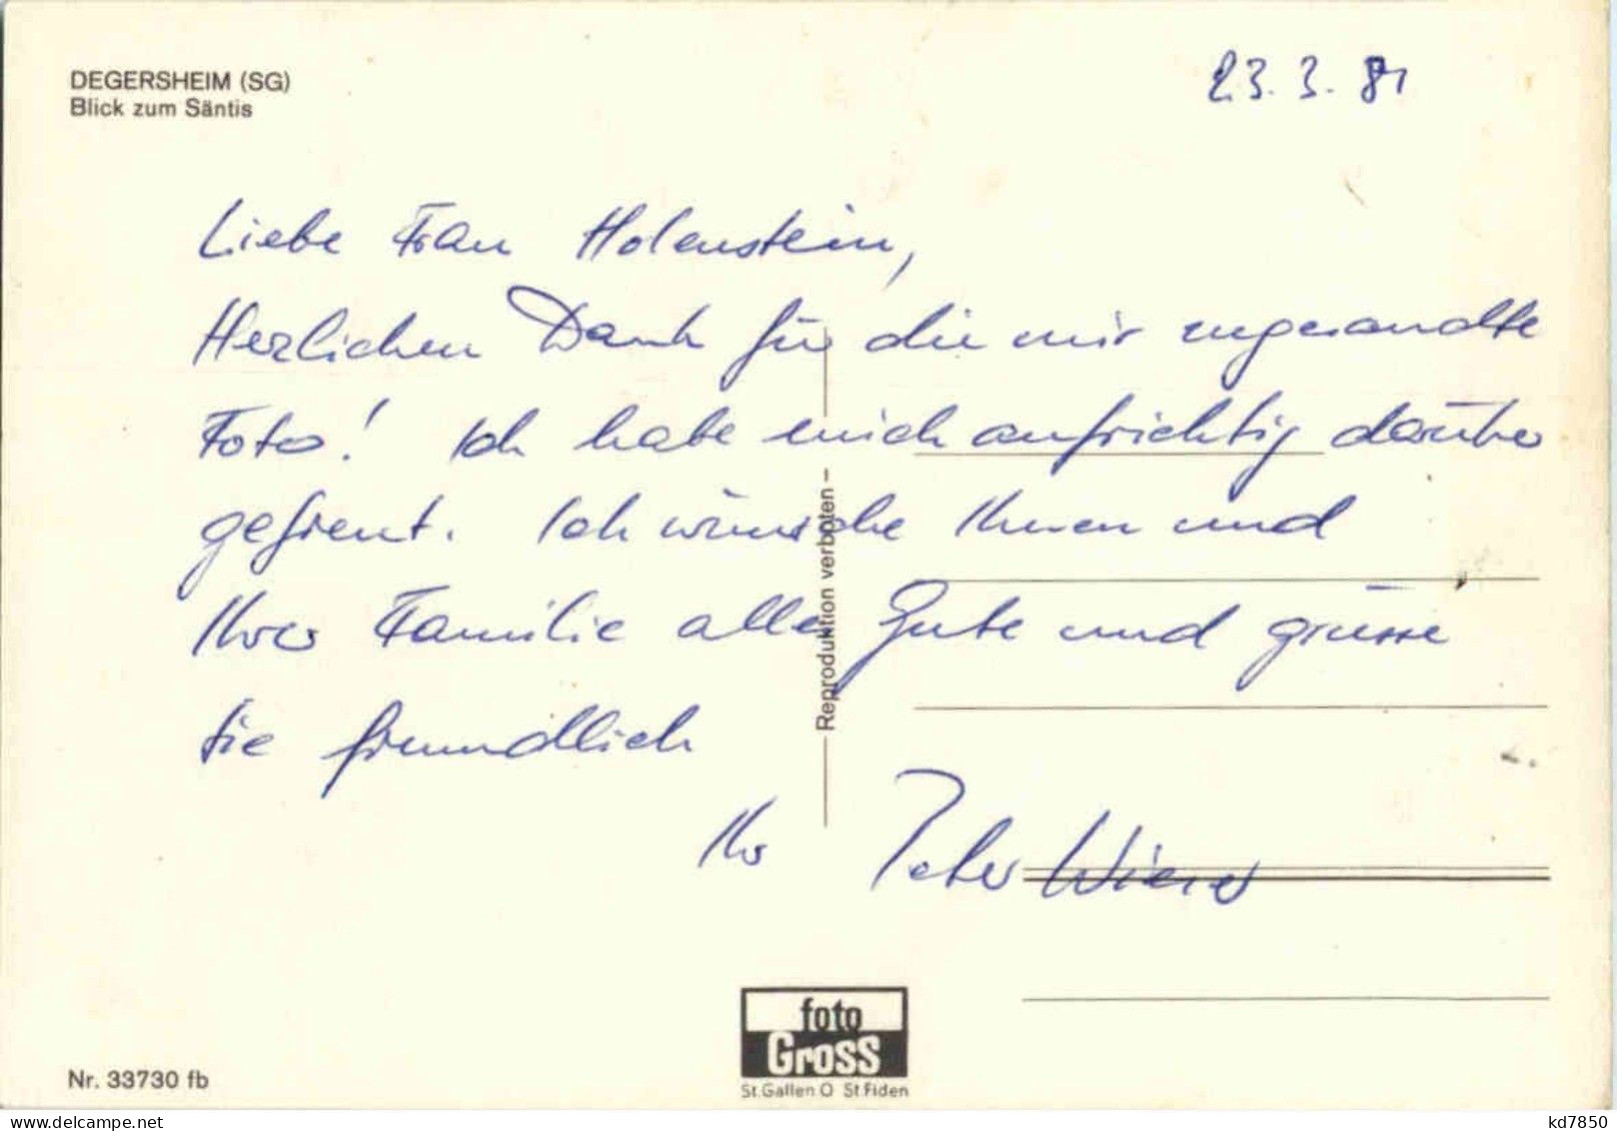 DEGERSHEIM (SG)
Blick zum Säntis
23. 3. 81
Liebe Frau Holenstein,
Herzlichen Dank für die mir zugesandte
Foto! Ich habe mich aufrichtig darüber
gefreut. Ich wünsche Ihnen und
Ihrer Familie alles Gute und grüsse
Sie freundlich
Ihr Peter Wiener
Reproduktion verboten
foto
Gross
St.Gallen O St.Fiden
Nr. 33730 fb
delcampe.net
kd7850